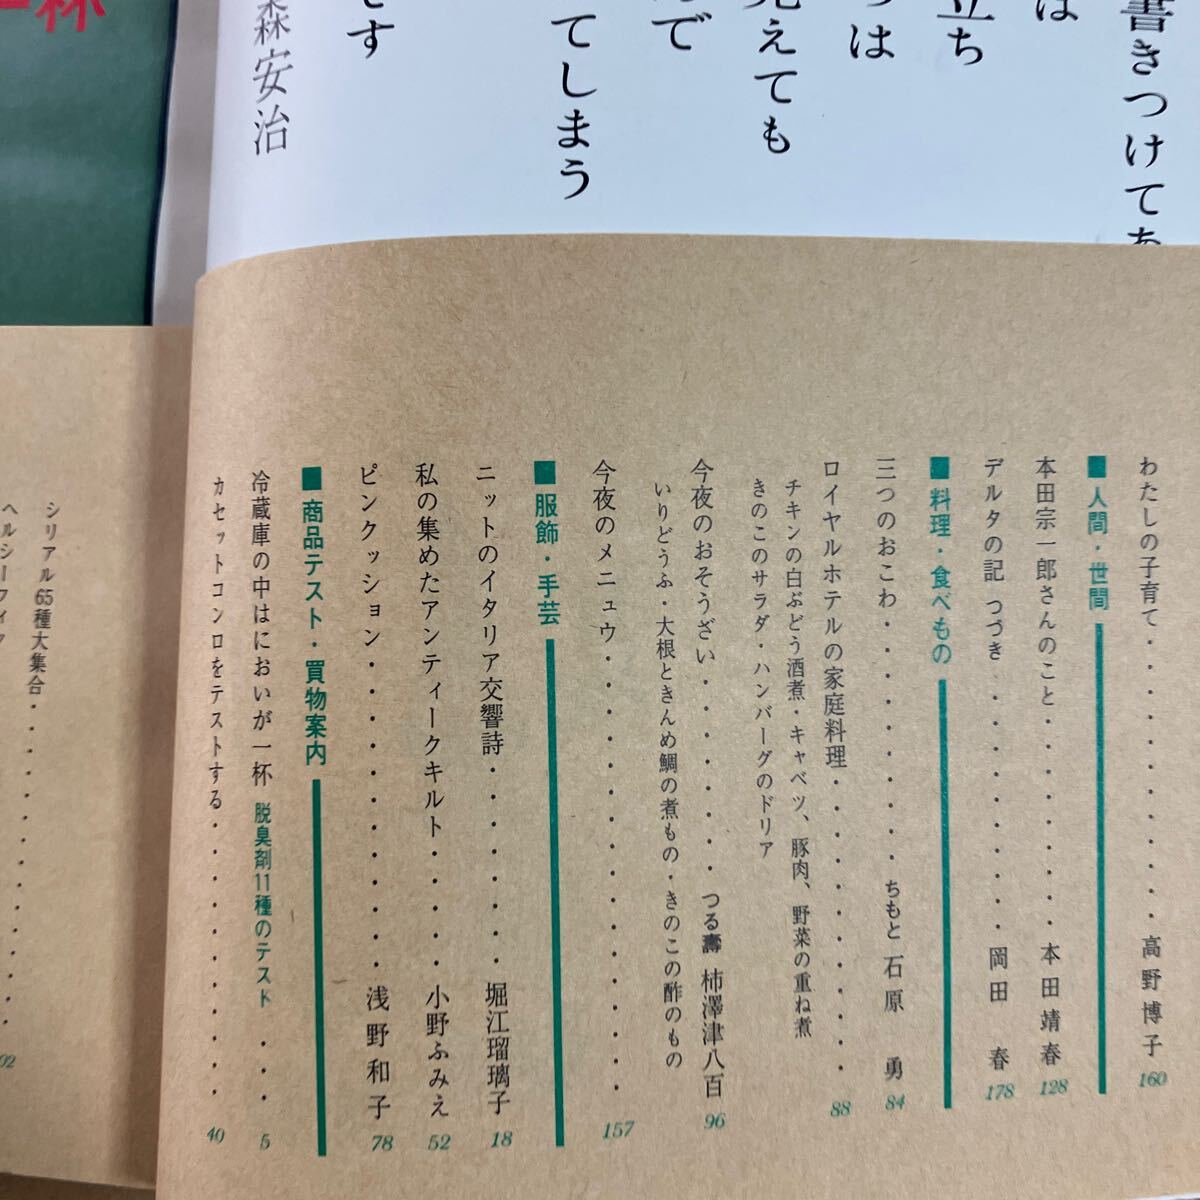 書きつけてあ
は
立ち
つは
見えても
んで
てしまう
です
森安治
わたしの子育て・・・・・・・・・・・高野博子 160
■人間・世間
本田宗一郎さんのこと・・・・・・・・本田靖春 128
デルタの記 つづき・・・・・・・・・岡田 春 178
■料理・食べもの
三つのおこわ・・・・・・・・・ちもと 石原 勇 84
ロイヤルホテルの家庭料理・・・・・・・・・・ 88
チキンの白ぶどう酒煮・キャベツ、豚肉、野菜の重ね煮
きのこのサラダ・ハンバーグのドリア
今夜のおそうざい・・・・・・・つる壽 柿澤津八百 96
いりどうふ・大根ときんめ鯛の煮もの・きのこの酢のもの
今夜のメニュウ・・・・・・・・・・・・・・・ 157
■服飾・手芸
ニットのイタリア交響詩・・・・・・・・堀江瑠璃子 18
私の集めたアンティークキルト・・・・・小野ふみえ 52
ピンクッション・・・・・・・・・・・・浅野和子 78
■商品テスト・買物案内
冷蔵庫の中はにおいが一杯 脱臭剤11種のテスト・・・ 5
カセットコンロをテストする・・・・・・・・・・・ 40
シリアル65種大集合・・・・・・・・・・
杯